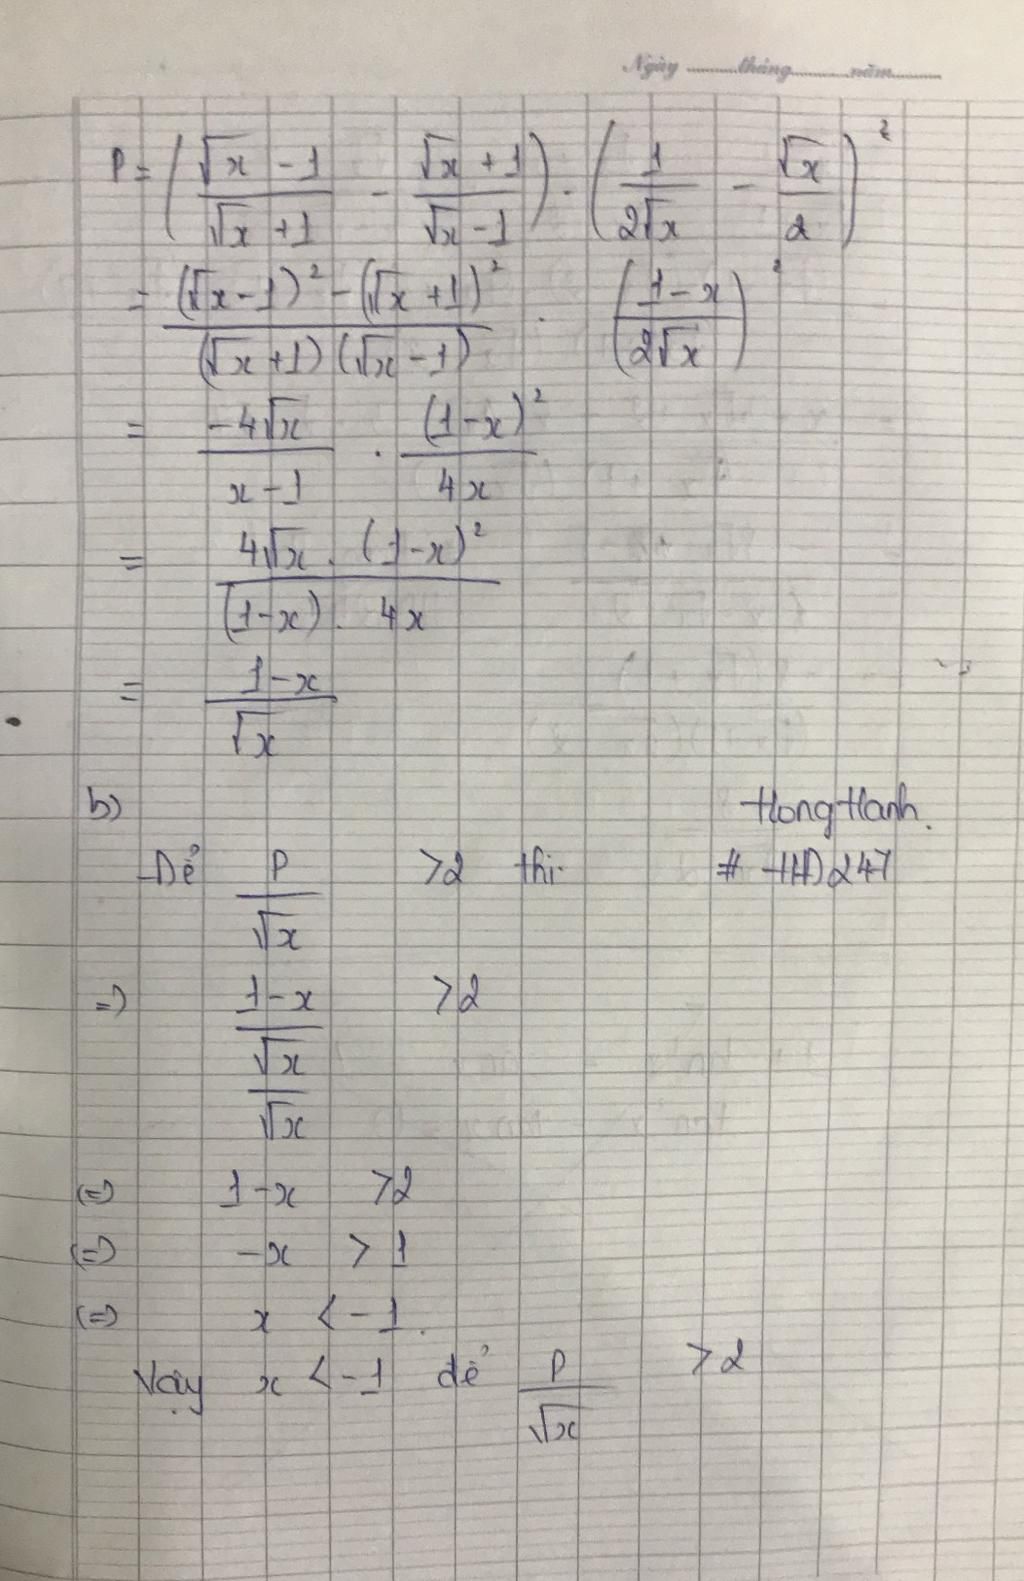 Ngày ........tháng..........năm.........
P = ( (√x - 1)/(√x + 1) - (√x + 1)/(√x - 1) ) . ( 1/(2√x) - √x/2 )²
= ((√x - 1)² - (√x + 1)²)/((√x + 1)(√x - 1)) . ( (1 - x)/(2√x) )²
= (-4√x)/(x - 1) . (1 - x)²/(4x)
= (4√x . (1 - x)²)/((1 - x) . 4x)
= (1 - x)/√x
b) HongHanh.
Để P/√x > 2 thì # HHD247
=> ((1 - x)/√x)/√x > 2
(=) 1 - x > 2
(=) -x > 1
(=) x < -1.
Vậy x < -1 để P/√x > 2